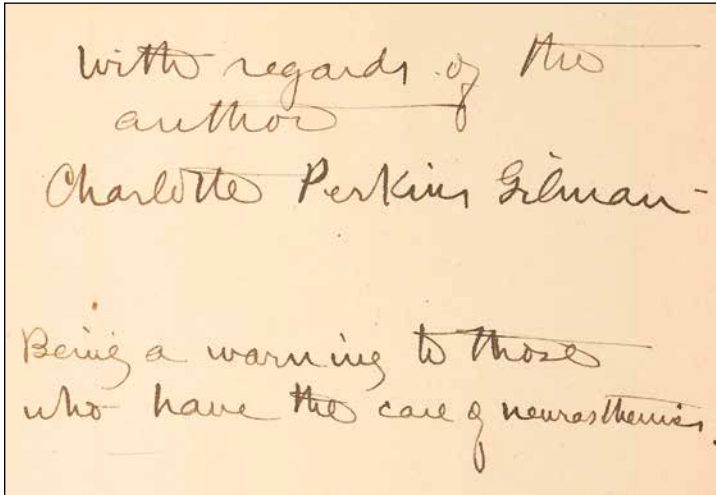 with regards of the
author
Charlotte Perkins Gilman-
Being a warning to those
who have the care of neurasthenics.